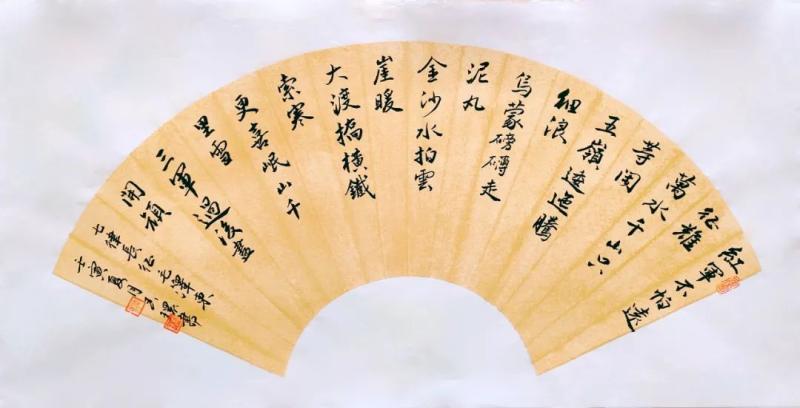 紅軍不怕遠
征難
萬水千山只
等閑
五嶺逶迤騰
細浪
烏蒙磅礴走
泥丸
金沙水拍雲
崖暖
大渡橋橫鐵
索寒
更喜岷山千
里雪
三軍過後盡
開顏
七律長征毛澤東
壬寅夏月